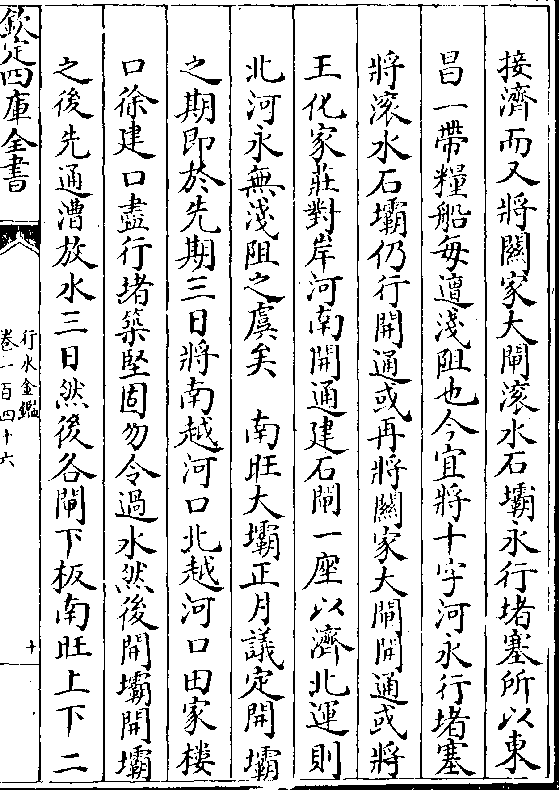 接濟而又將闗家大閘滚水石壩永行堵塞所以東
昌一帶糧船每遭淺阻也今宜將十字河永行堵塞
將滚水石壩仍行開通或再將闗家大閘開通或將
王化家莊對岸河南開通建石閘一座以濟北運則
北河永無淺阻之虞矣　南旺大壩正月議定開壩
之期即於先期三日將南越河口北越河口田家樓
口徐建口盡行堵築堅固勿令過水然後開壩開壩
之後先通漕放水三日然後各閘下板南旺上下二
欽定四庫全書
行水金鑑
卷一百四十六
十